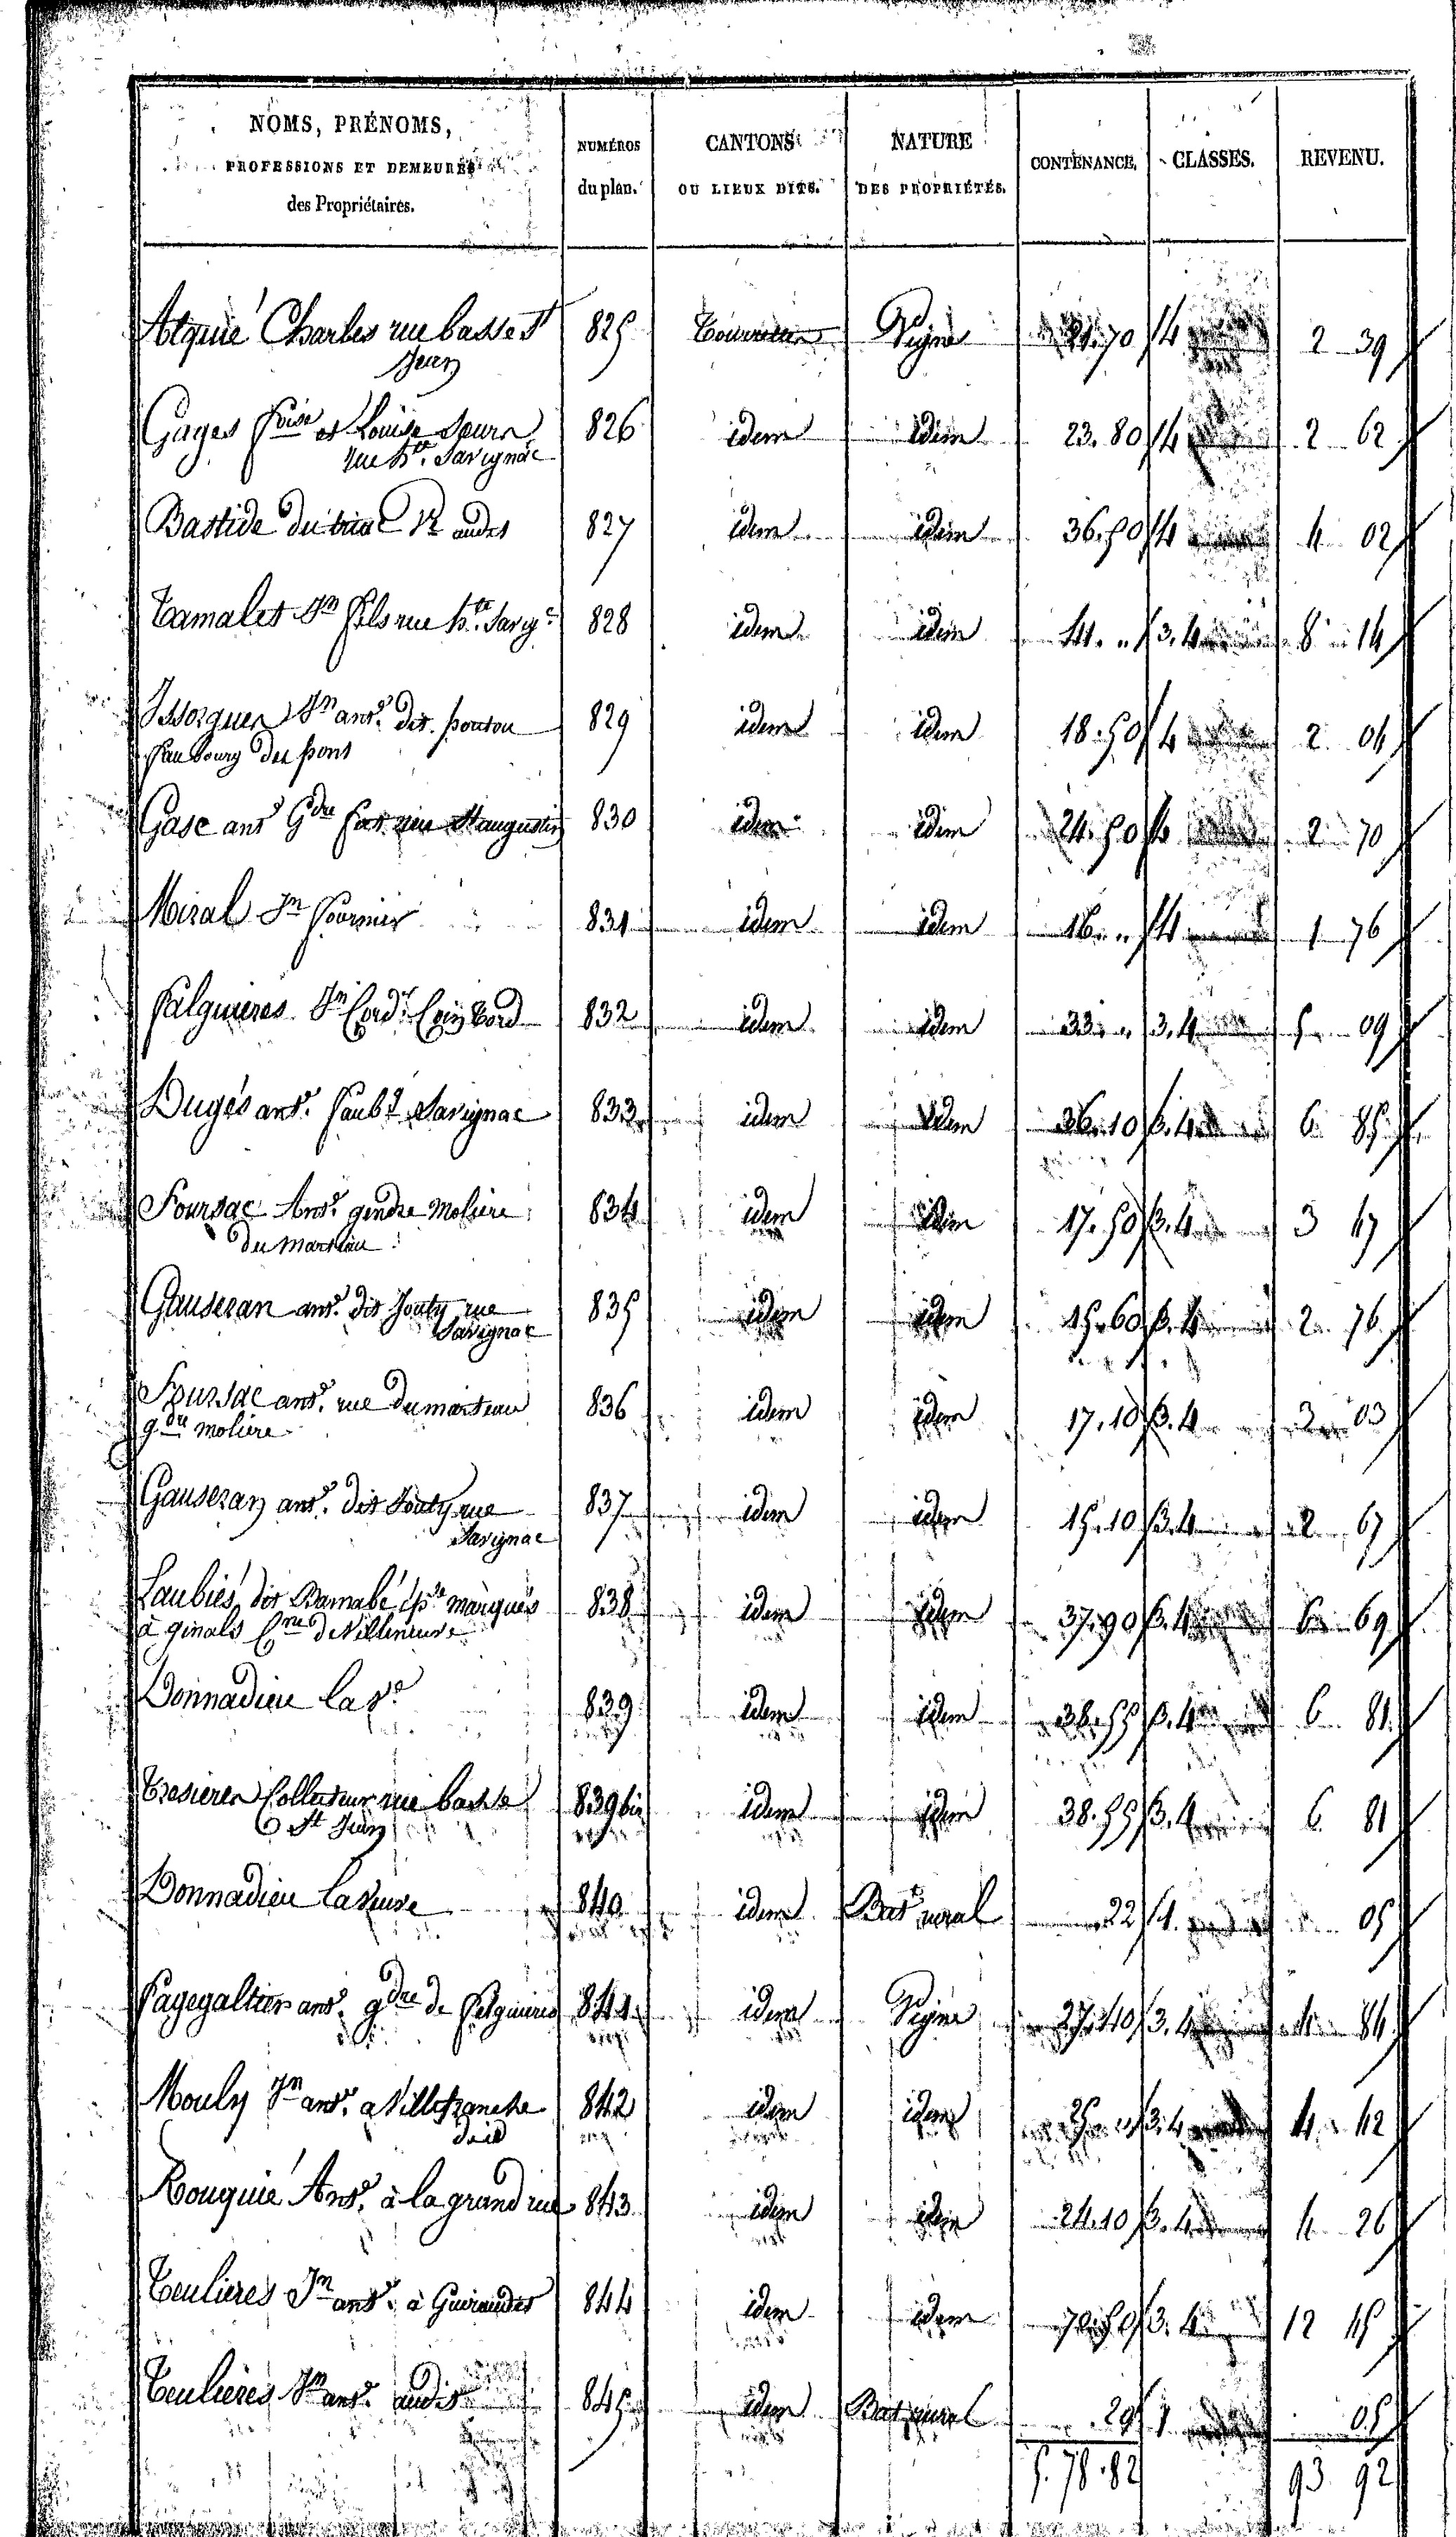 NOMS, PRÉNOMS,
PROFESSIONS ET DEMEURES
des Propriétaires.
NUMÉROS
du plan.
CANTONS
OU LIEUX DITS.
NATURE
DES PROPRIÉTÉS.
CONTENANCE.
CLASSES.
REVENU.
Alquié Charles rue basse St 825 Vigne 21.70 4 2 39
Jean
Gages foise et Louise Sœurs 826 idem idem 23.80 4 2 62
rue hte Savignac
Bastide du 827 idem idem 36.50 4 4 02
Tamalet Jn fils rue hte Savigc 828 idem idem 41. " 3.4 8 14
Issorguer Jn ante dit pouton 829 idem idem 18.50 4 2 04
faubourg du pont
Gasc ant gdre rue St augustin 830 idem idem 24.50 4 2 70
Miral Jn fournier 831 idem idem 16. " 4 1 76
falguieres Jn Cordr 832 idem idem 33. " 3.4 5 09
Dugés ante faubg Savignac 833 idem idem 36.10 3.4 6 85
Foursac Ante gendre moliere 834 idem idem 17.50 3.4 3 47
du marteau
Gauseran ante dit Jouty rue 835 idem idem 15.60 3.4 2 76
Savignac
Foursac ante rue du marteau 836 idem idem 17.10 3.4 3 03
gdre moliere
Gauseran ante dit Jouty rue 837 idem idem 15.10 3.4 2 67
Savignac
Laubiés dit Barnabé marqués 838 idem idem 37.90 3.4 6 69
à ginals Cne de Villeneuve
Donnadieu la ve 839 idem idem 38.55 3.4 6 81
Tresieres Collecteur rue basse 839 bis idem idem 38.55 3.4 6 81
St Jean
Donnadieu la veuve 840 idem Bat rural 22 1 05
fagegaltier ante gdre de falguieres 841 idem Vigne 27.40 3.4 4 84
Mouly Jn ante a Villefranche 842 idem idem 25. " 3.4 4 42
Rouquié Ante à la grand rue 843 idem idem 24.10 3.4 4 26
Teulieres Jn ante à Guiraudet 844 idem idem 70.50 3.4 12 45
Teulieres Jn ante audit 845 idem Bat rural 29 1 05
5.78.82 93 92